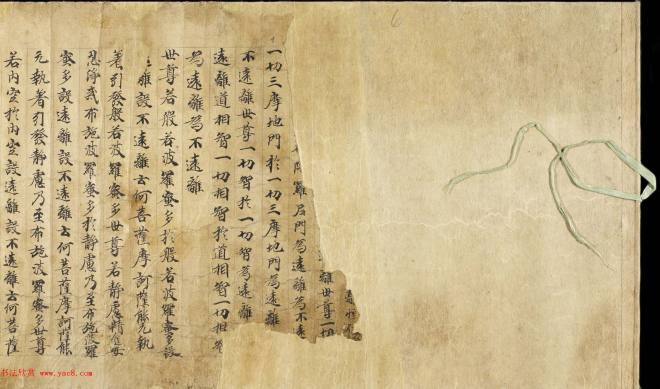 6
離世尊一切
羅尼門為遠離為不遠
一切三摩地門於一切三摩地門為遠離
不遠離世尊一切智於一切智為遠離
遠離道相智一切相智於道相智一切相智
為遠離為不遠離
世尊若般若波羅蜜多於般若波羅蜜多設
離設不遠離云何菩薩摩訶薩能无執
著引發般若波羅蜜多世尊若靜慮精進安
忍淨戒布施波羅蜜多於靜慮乃至布施波羅
蜜多設遠離設不遠離云何菩薩摩訶薩能
无執著引發靜慮乃至布施波羅蜜多世尊
若內空於內空設遠離設不遠離云何菩薩
书法欣赏 www.yac8.com